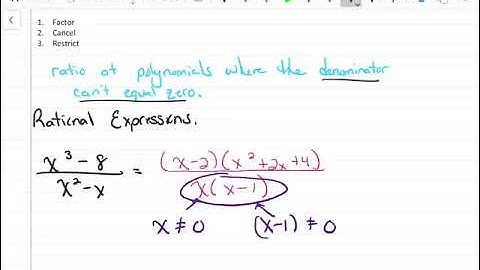 1. Factor
2. Cancel
3. Restrict
ratio of polynomials where the denominator
can't equal zero.
Rational Expressions.
x³ - 8 / x² - x = (x-2)(x²+2x+4) / x(x-1)
x ≠ 0 (x-1) ≠ 0